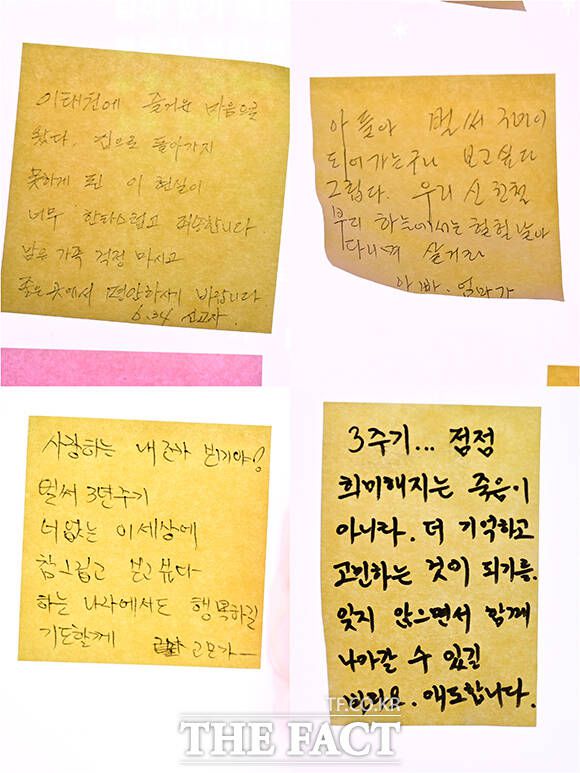 이태원에 즐거운 마음으로
왔다. 집으로 돌아가지
못하게 된 이 현실이
너무 안타스럽고 죄송합니다
남은 가족 걱정 마시고
좋은곳에서 편안하시기 바랍니다.
6.34 신고자.
아들아 벌써 3년이
되어가는구나 보고싶다
그립다. 우리
부디 하늘에서는 훨훨 날아
다니며 살거라
아빠. 엄마가
사랑하는 내 조카
벌써 3년주기
너 없는 이세상에
참 그립고 보고 싶다
하늘 나라에서도 행복하길
기도할께 고모가
3주기... 점점
희미해지는 죽음이
아니라. 더 기억하고
고민하는 것이 되기를.
잊지 않으면서 함께
나아갈 수 있길
빈다요. 애도합니다.
TF.CO.KR
THE FACT